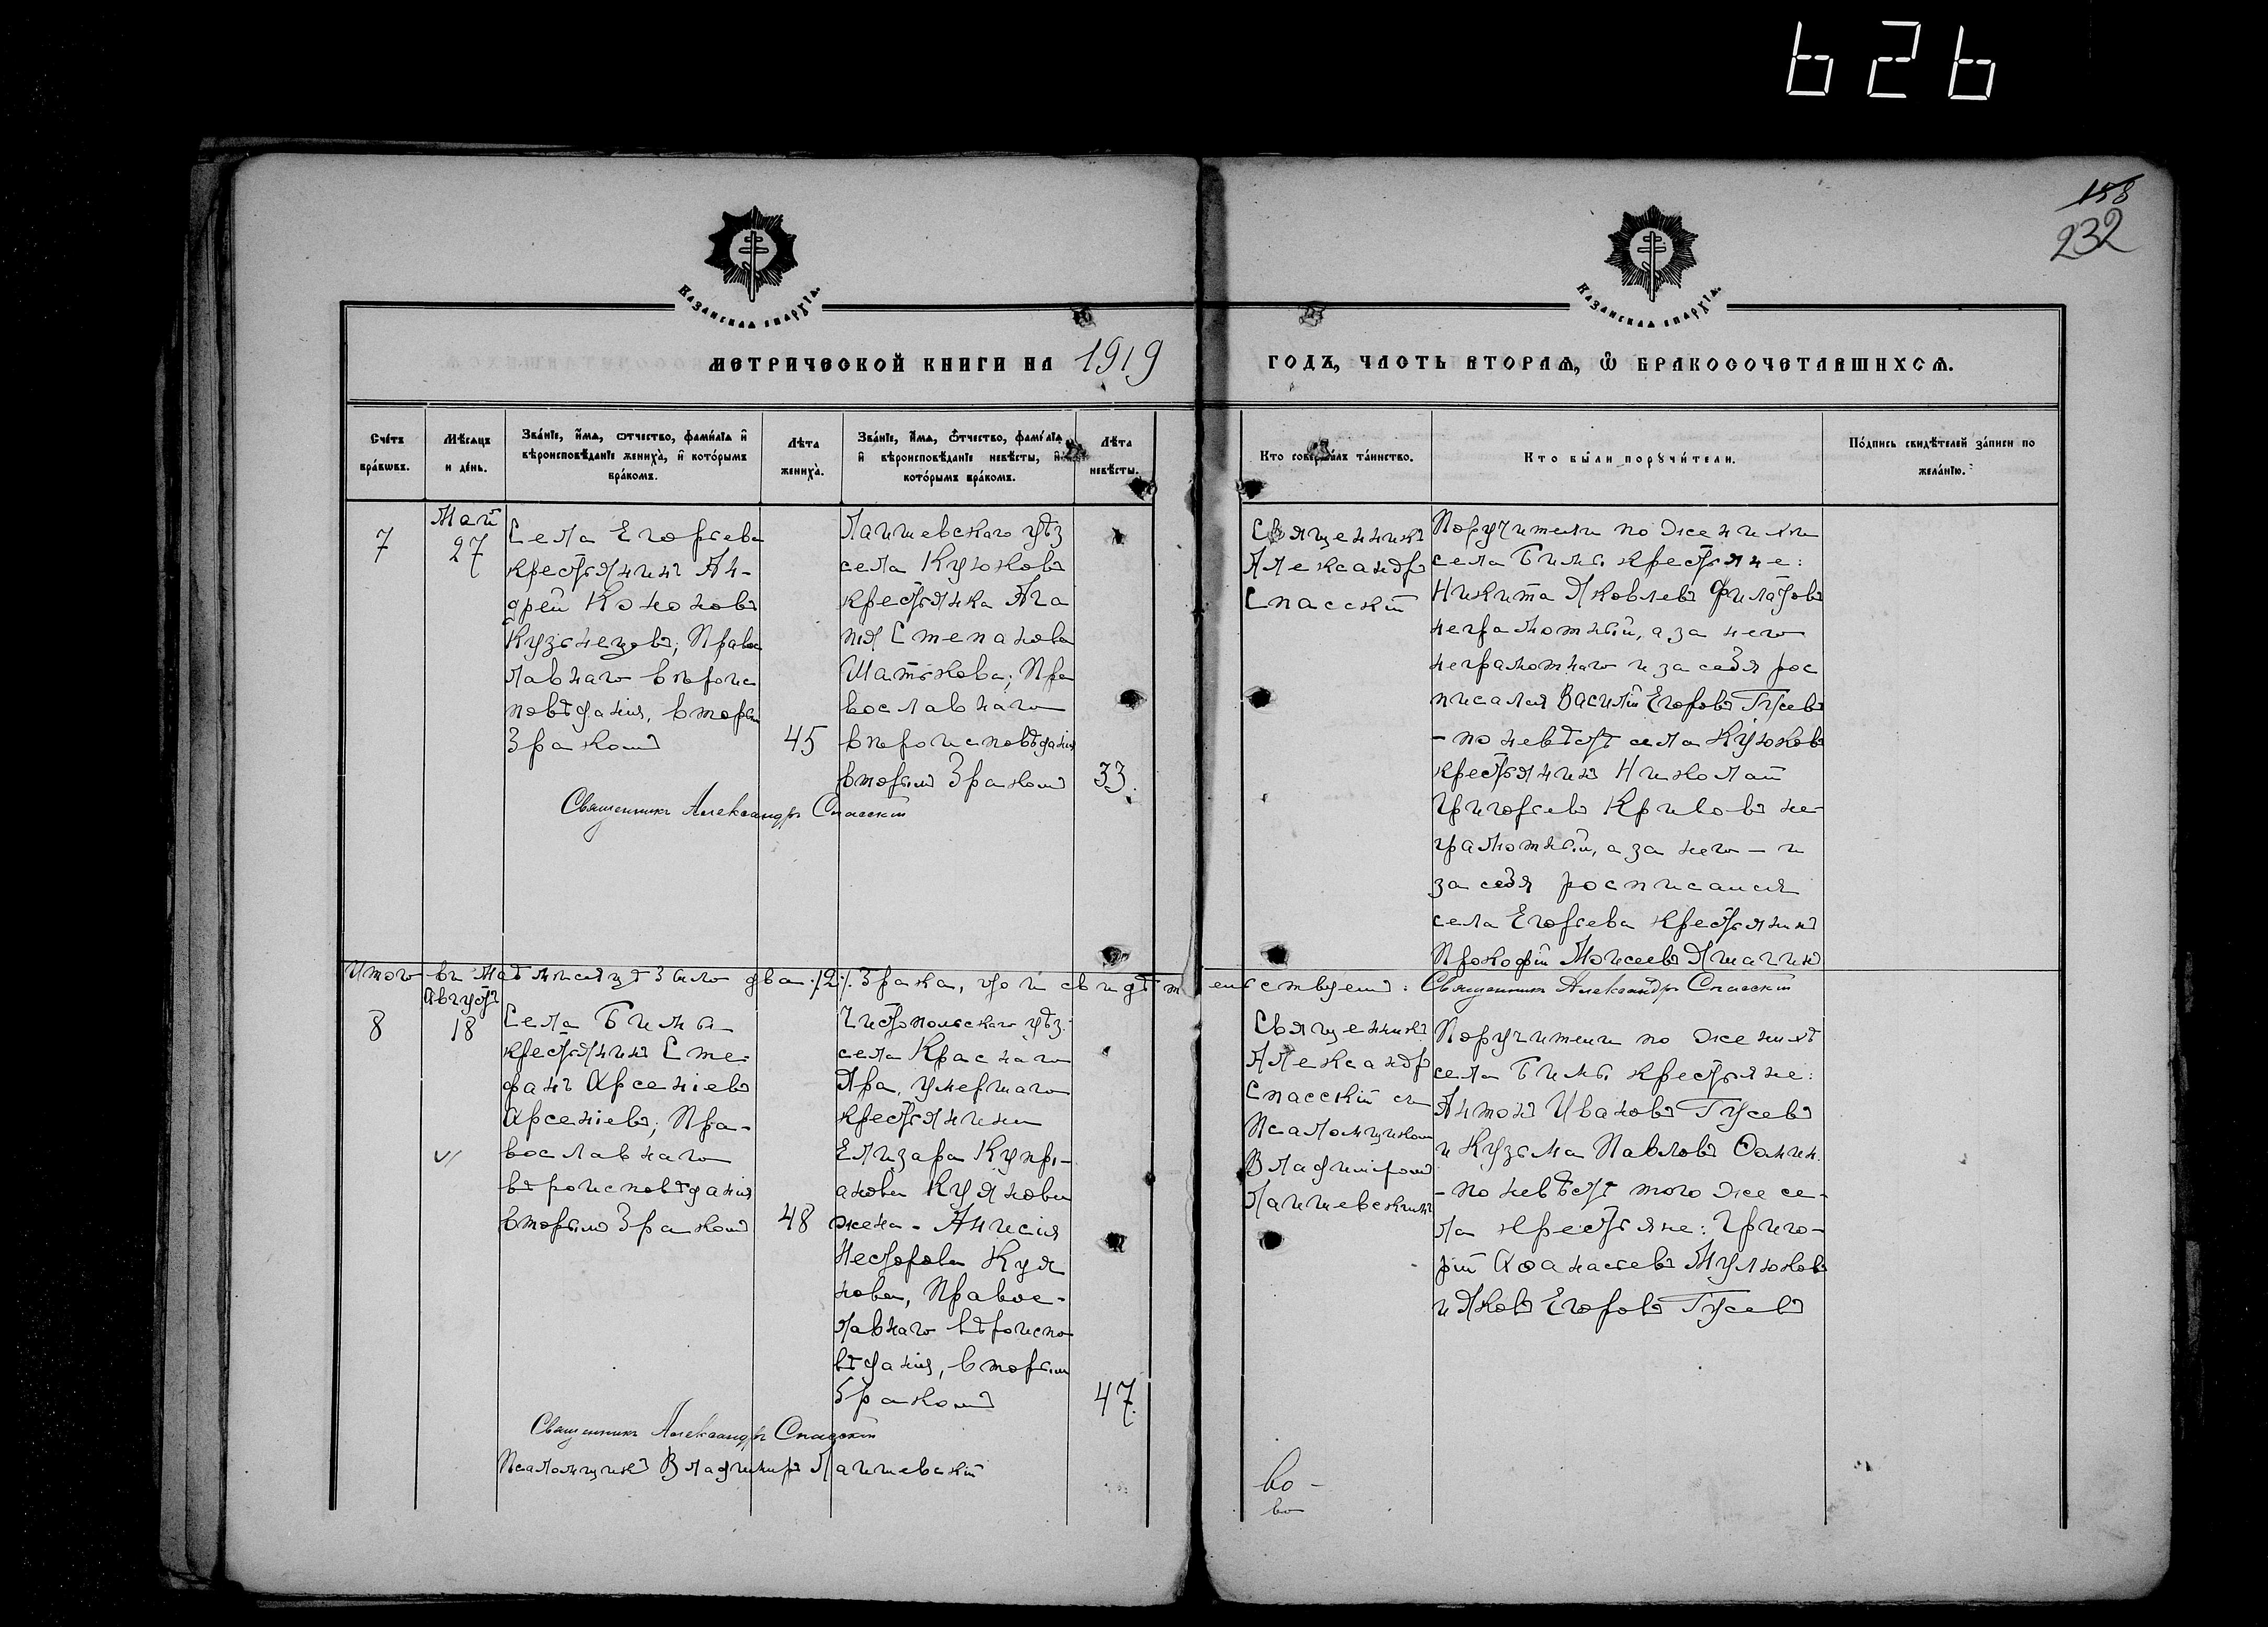 626
158
232
Казанская епархїа.
Казанская епархїа.
МЕТРИЧЕСКОЙ КНИГИ НА 1919
ГОДЪ, ЧАСТЬ ВТОРАЯ, Ѡ БРАКОСОЧЕТАВШИХСЯ.
Счетъ браковъ.
Мѣсяцъ и день.
Званіе, имя, отчество, фамилія и вѣроисповѣданіе жениха, и которымъ бракомъ.
Лѣта жениха.
Званіе, имя, отчество, фамилія и вѣроисповѣданіе невѣсты, и которымъ бракомъ.
Лѣта невѣсты.
Кто совершалъ таинство.
Кто были поручители.
Подпись свидѣтелей записи по желанію.
7
Май
27
Села Егорьева
крестьянинъ Ан-
дрей Кононовъ
Кузьнецовъ; Правос
лавнаго вѣроис
повѣданія, вторымъ
бракомъ
45
Лаишевскаго уѣз
села Кулюковъ
крестьянка Ага
пія Степанова
Шатькова; Пра
вославнаго
вѣроисповѣданія
вторымъ бракомъ
33.
Священникъ Александръ Спасскій
Священникъ
Александръ
Спасскій
Поручители по женихи
села Бимь крестьяне:
Никита Яковлевъ Филатовъ
неграмотный, а за него
неграмотнаго и за себя рос
писался Василій Егоровъ Гусевъ
- по невѣстѣ села
крестьянинъ Николай
Григорьевъ Кривовъ не-
грамотный, а за него - и
за себя росписался
села Егорьева крестьянинъ
Прокофій Моисеевъ
Итого въ Маѣ мѣсяцѣ было два /2/. брака, что и свидѣтельствуемъ: Священникъ Александръ Спасскій
8
Августъ
18
Села Бимь
крестьянинъ Сте-
фанъ Арсеніевъ
Арсеніевъ; Пра-
вославнаго
вѣроисповѣданія
вторымъ бракомъ
48
Чистопольскаго уѣз.
села Краснаго
Яра, умершаго
крестьянина
Елизара Купрі-
анова Куянова
жена - Анисія
Несторова Куя
нова, Правос-
лавнаго вѣроиспо
вѣданія, вторымъ
бракомъ
47.
Священникъ Александръ Спасскій
Псаломщикъ Владиміръ Лаишевскій
Священникъ
Александръ
Спасскій съ
Псаломщикомъ
Владиміромъ
Лаишевскимъ
Поручители по женихѣ
села Бимь крестьяне:
Антонъ Ивановъ Гусевъ
и Кузьма Павловъ
- по невѣстѣ того же се-
ла крестьяне: Григо-
рій Аѳанасьевъ Мулюковъ
и Яковъ Егоровъ Гусевъ
во -
во